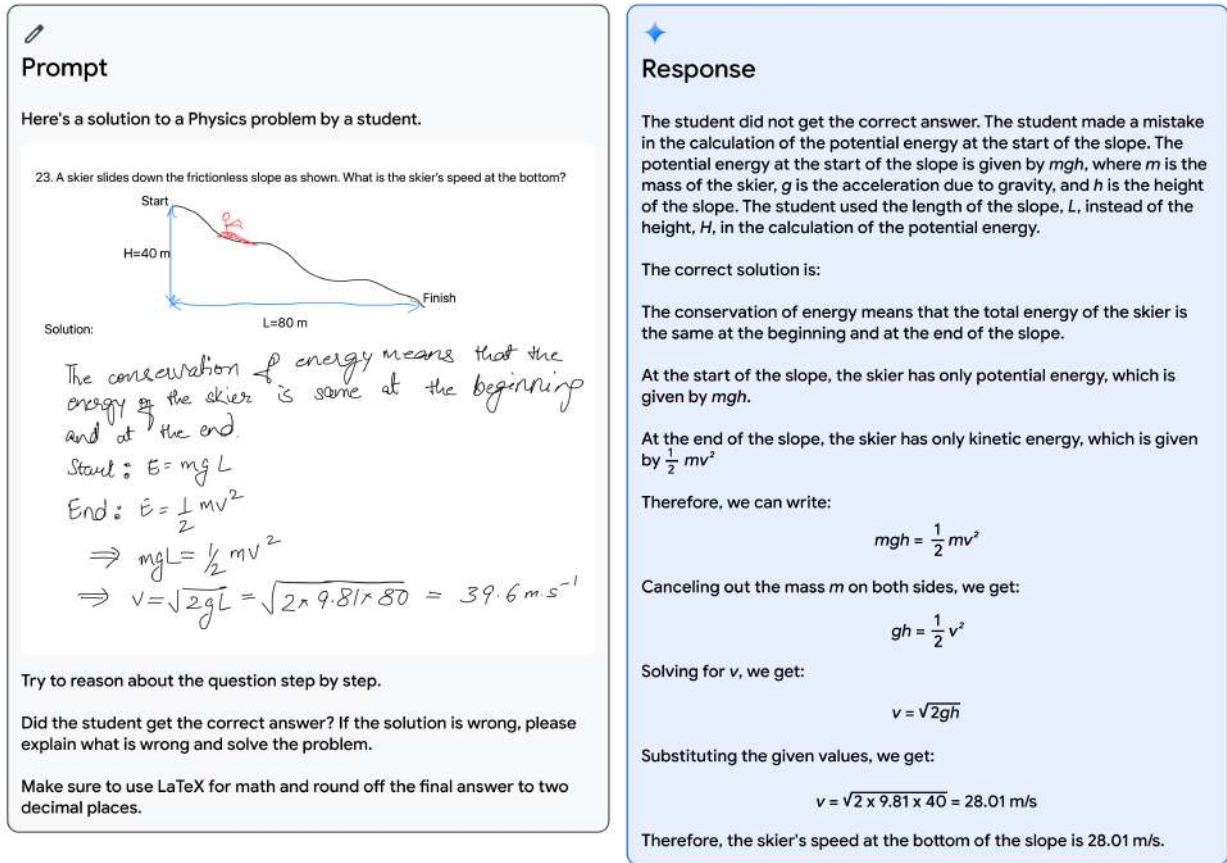 Prompt
Here's a solution to a Physics problem by a student.
23. A skier slides down the frictionless slope as shown. What is the skier's speed at the bottom?
Start
H=40 m
Finish
L=80 m
Solution:
The conservation of energy means that the
energy of the skier is same at the beginning
and at the end.
Start : E = mgL
End : E = 1/2 mv²
⇒ mgL = 1/2 mv²
⇒ v = √2gL = √2 × 9.81 × 80 = 39.6 m.s⁻¹
Try to reason about the question step by step.
Did the student get the correct answer? If the solution is wrong, please
explain what is wrong and solve the problem.
Make sure to use LaTeX for math and round off the final answer to two
decimal places.
Response
The student did not get the correct answer. The student made a mistake
in the calculation of the potential energy at the start of the slope. The
potential energy at the start of the slope is given by mgh, where m is the
mass of the skier, g is the acceleration due to gravity, and h is the height
of the slope. The student used the length of the slope, L, instead of the
height, H, in the calculation of the potential energy.
The correct solution is:
The conservation of energy means that the total energy of the skier is
the same at the beginning and at the end of the slope.
At the start of the slope, the skier has only potential energy, which is
given by mgh.
At the end of the slope, the skier has only kinetic energy, which is given
by 1/2 mv²
Therefore, we can write:
mgh = 1/2 mv²
Canceling out the mass m on both sides, we get:
gh = 1/2 v²
Solving for v, we get:
v = √2gh
Substituting the given values, we get:
v = √2 x 9.81 x 40 = 28.01 m/s
Therefore, the skier's speed at the bottom of the slope is 28.01 m/s.